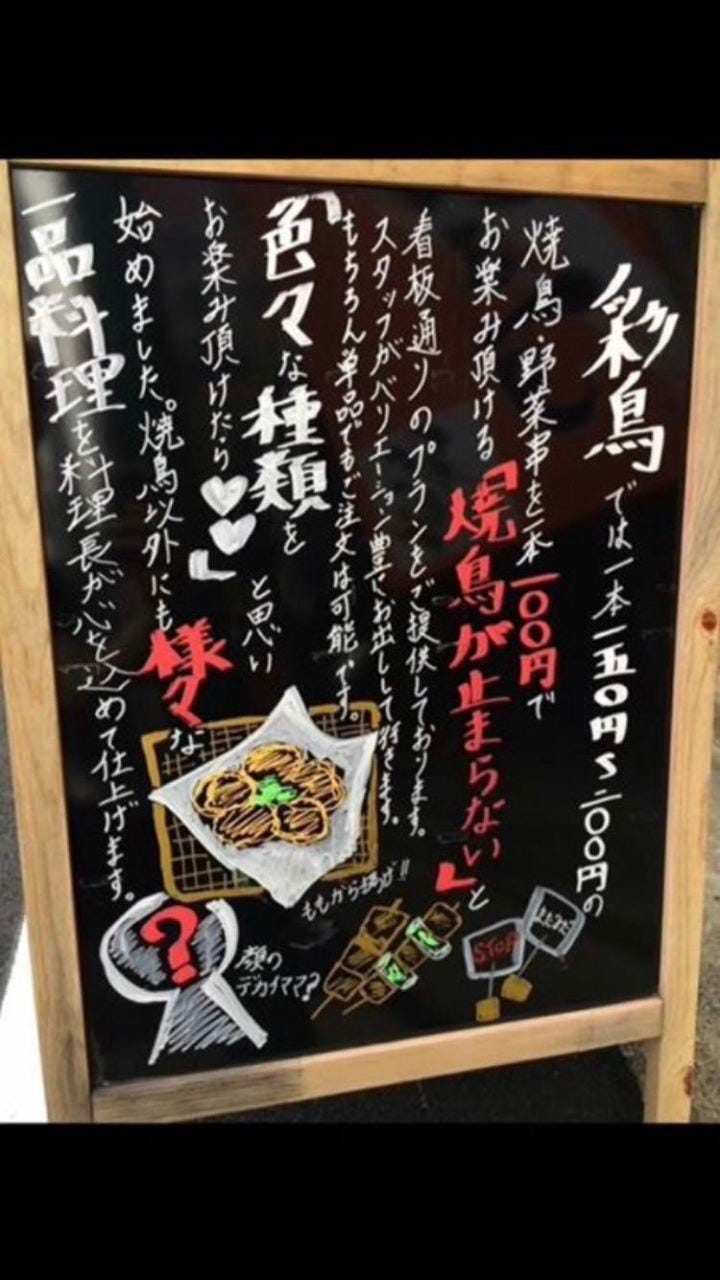 彩鳥では一本一五〇円〜二〇〇円の
焼鳥・野菜串を一本一〇〇円で
お楽み頂ける「焼鳥が止まらない」と
看板通りのプランをご提供しております。
スタッフがバリエーション豊にお出しして行きます。
もちろん単品でもご注文は可能です。
「色々な種類を
お楽み頂けたら♡♡」と思い
始めました。焼鳥以外にも様々な
一品料理を料理長が心を込めて仕上げます。
ももから揚げ!!
STOP
顔の
デカイママ?
?